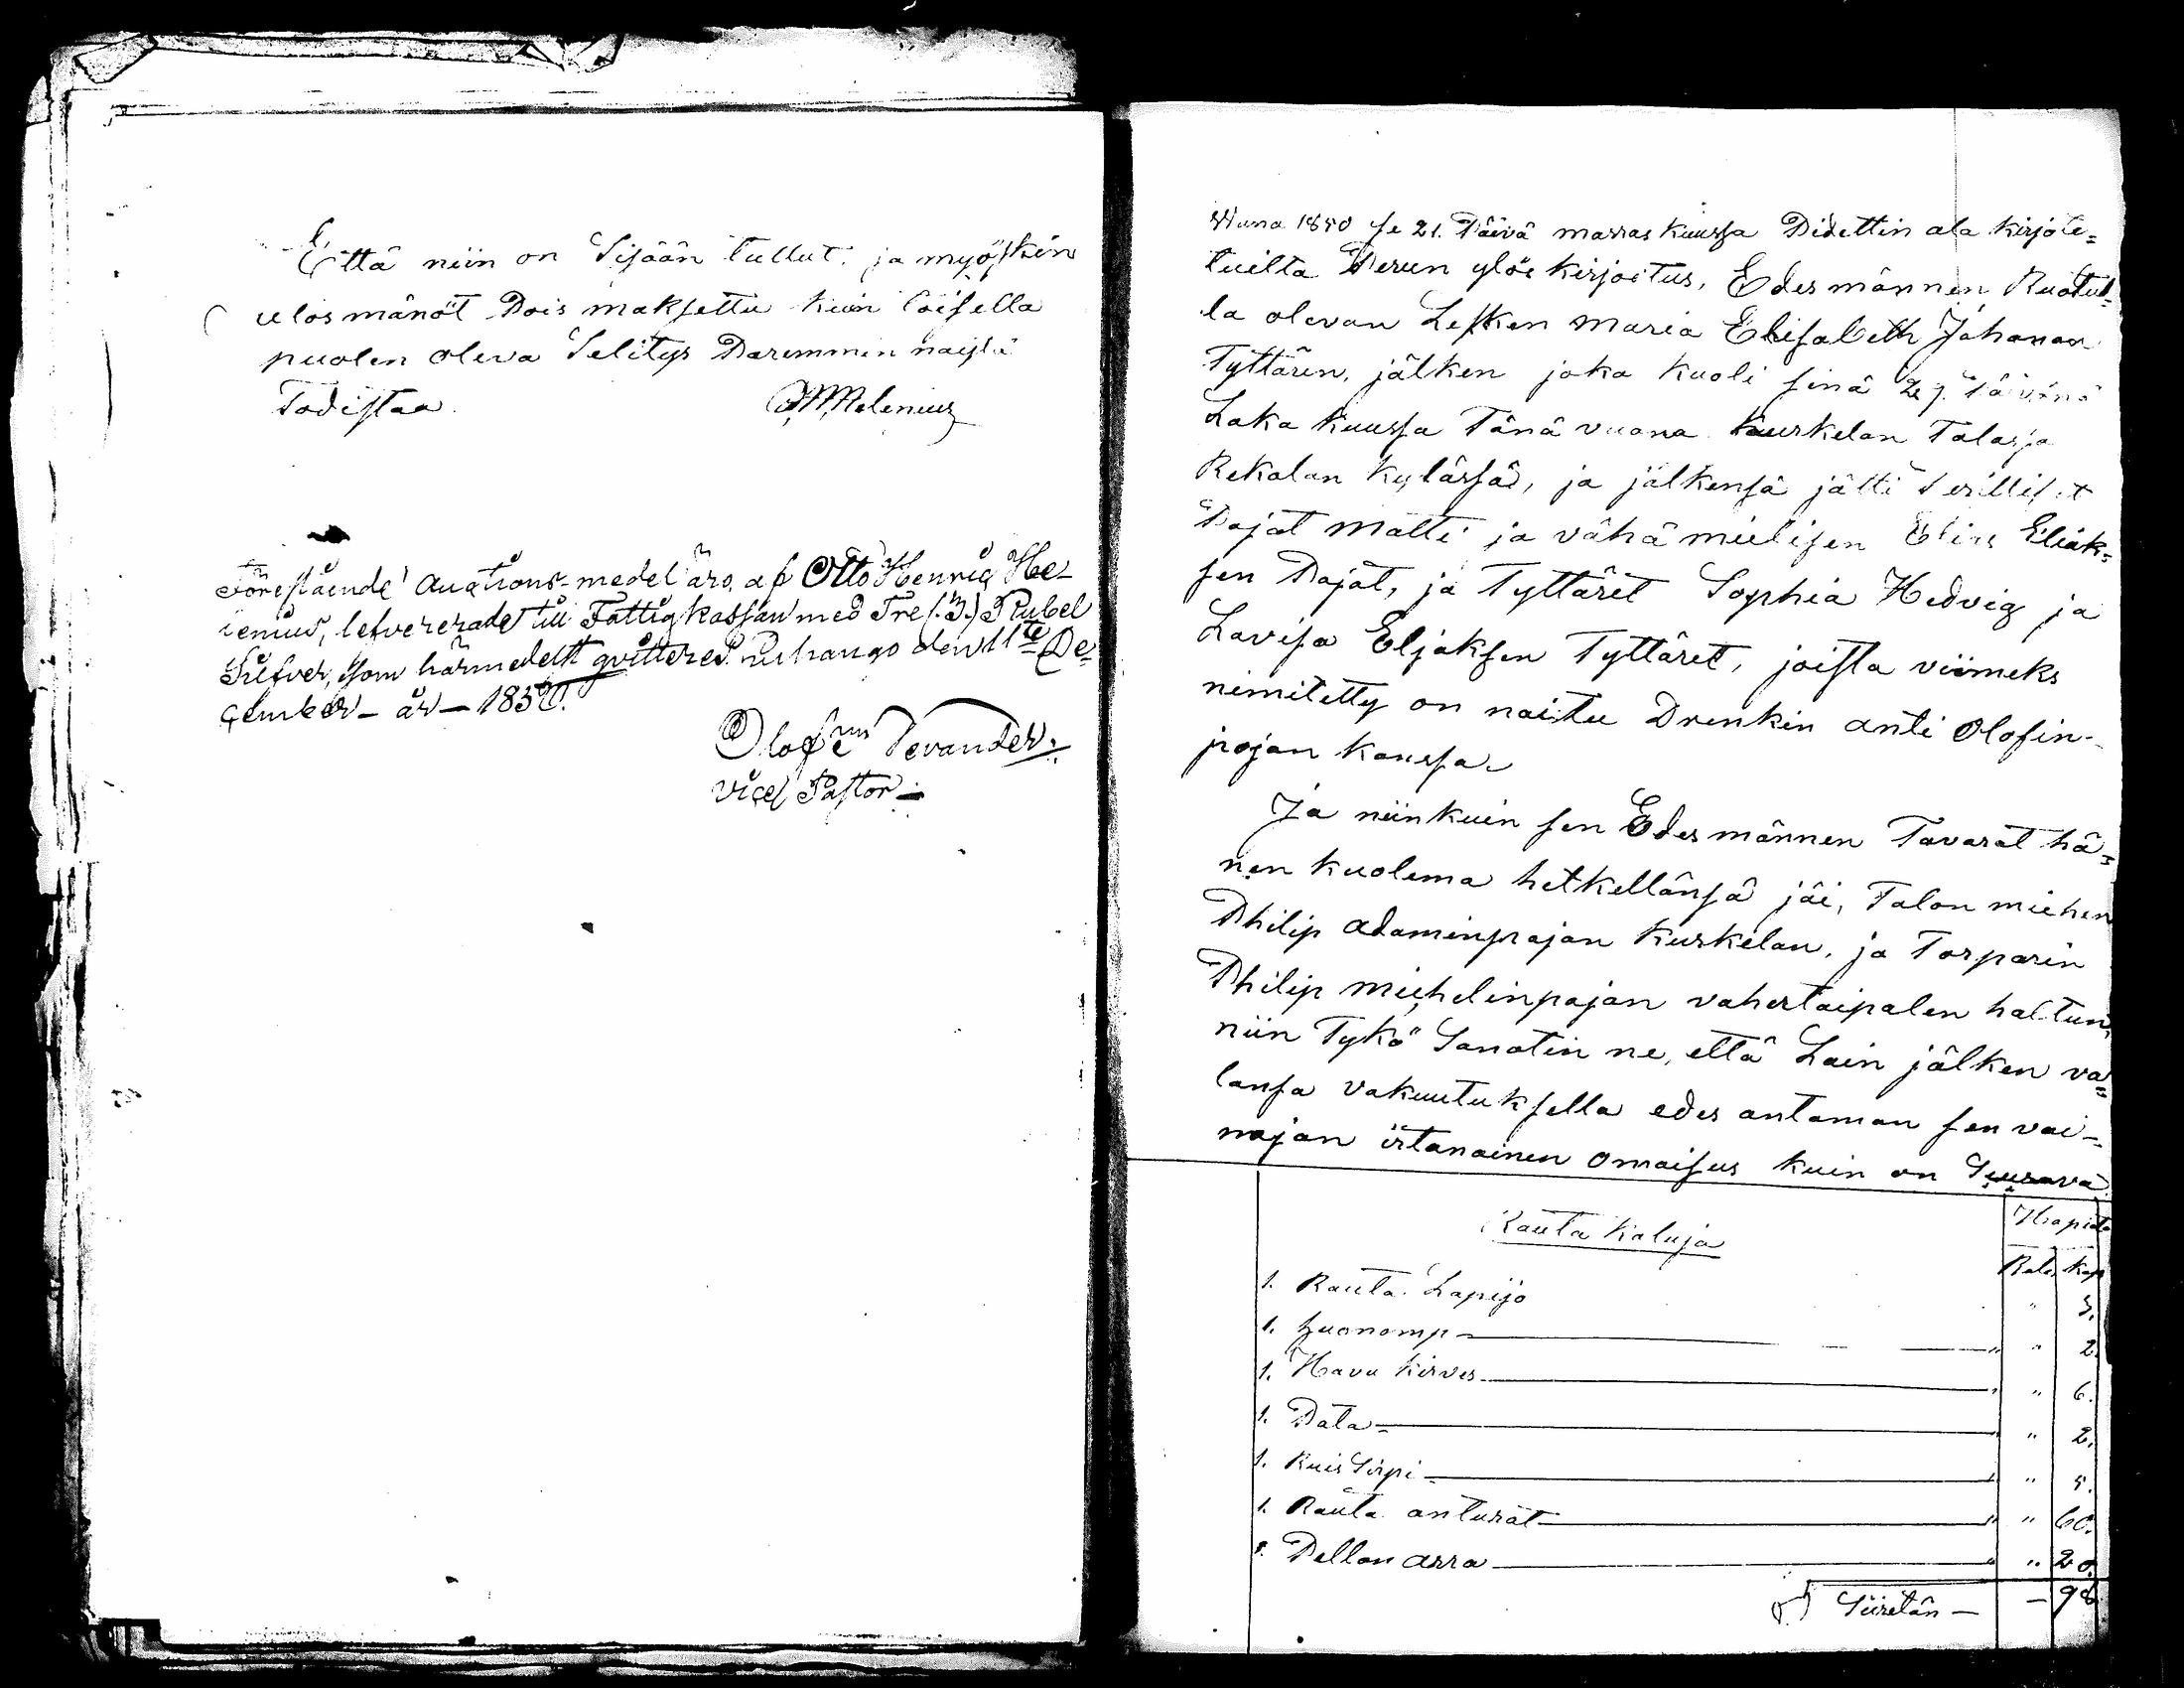 Että niin on Sisään tullut. ja myöskin
ulos mänöt Pois maksettu kuin toisella
puolen oleva Selitys Paremmin näistä
Todistaa.
Förestående Auctions-medel äro, af Otto Henric He-
lenius, lefvererade till Fattigkassan med Tre (:3.) Rubel
Silfver, som härmedelst qvitteras. den 11te De-
cember - år - 1850.
Olof Devander.
vice Pastor -
Wuna 1850 se 21. Päivä marraskuussa Pidettin ala kirjoite=
tuilta Perun ylös kirjoitus, Edesmännen Ruotul=
la olevan Lesken Maria Elisabeth Johanan
Tyttären, jälken joka kuoli sinä 29. Päivänä
Loka kuussa Tänä vuona Kurkelan Talossa
Rekolan kylässä, ja jälkensä jätti Perilliset
Pojat Matti ja vähä mielisen Elias Eliak=
sen Pojat, ja Tyttäret Sophia Hedvig ja
Lovisa Eljaksen Tyttäret, joista viimeks
nimitetty on naitu Drenkin anti Olofin-
pojan kanssa.
Ja niinkuin sen Edesmännen Tavarat hä=
nen kuolema hetkellänsä jäi, Talon miehen
Philip Adaminpojan Kurkelan, ja Torparin
Philip Michelinpojan vahertaipalen haltun,
niin Tykö Sanotin ne, että Lain jälken va=
lansa vakuutuksella edes antaman sen vai-
najan irtanainen omaisus kuin on Seurava.
Rauta kaluja
Hopiata
Rubl. Kop
1. Rauta Lapijo " 3.
1. " " 2.
1. Havu kirves " " 6.
1. Pata " " 2.
1. Ruis Sirpi " " 5.
1. Rauta anturat " " 60.
1. Pellon arra " " 20.
Siiretän - - 98